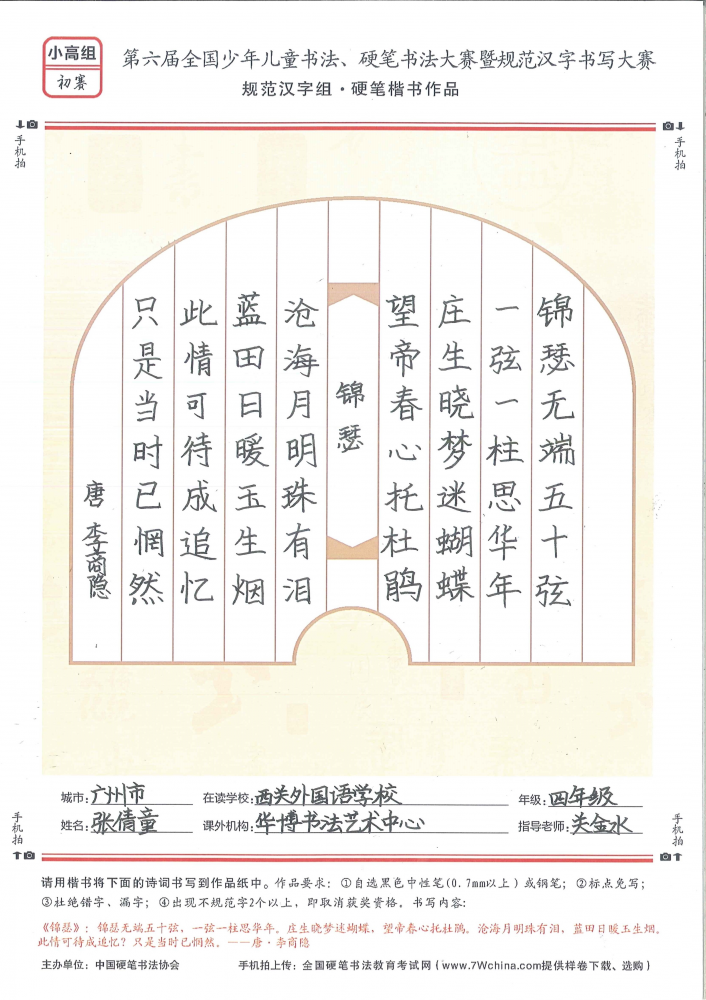 小高组
初赛
第六届全国少年儿童书法、硬笔书法大赛暨规范汉字书写大赛
规范汉字组·硬笔楷书作品
手机拍
手机拍
锦瑟无端五十弦
一弦一柱思华年
庄生晓梦迷蝴蝶
望帝春心托杜鹃
锦瑟
沧海月明珠有泪
蓝田日暖玉生烟
此情可待成追忆
只是当时已惘然
唐 李商隐
城市:广州市 在读学校:西关外国语学校 年级:四年级
姓名:张倩童 课外机构:华博书法艺术中心 指导老师:关金水
手机拍
手机拍
请用楷书将下面的诗词书写到作品纸中。作品要求：①自选黑色中性笔(0.7mm以上)或钢笔；②标点免写；
③杜绝错字、漏字；④出现不规范字2个以上，即取消获奖资格。书写内容:
《锦瑟》：锦瑟无端五十弦，一弦一柱思华年。庄生晓梦迷蝴蝶，望帝春心托杜鹃。沧海月明珠有泪，蓝田日暖玉生烟。
此情可待成追忆？只是当时已惘然。——唐·李商隐
主办单位：中国硬笔书法协会 手机拍上传：全国硬笔书法教育考试网（www.7Wchina.com提供样卷下载、选购）